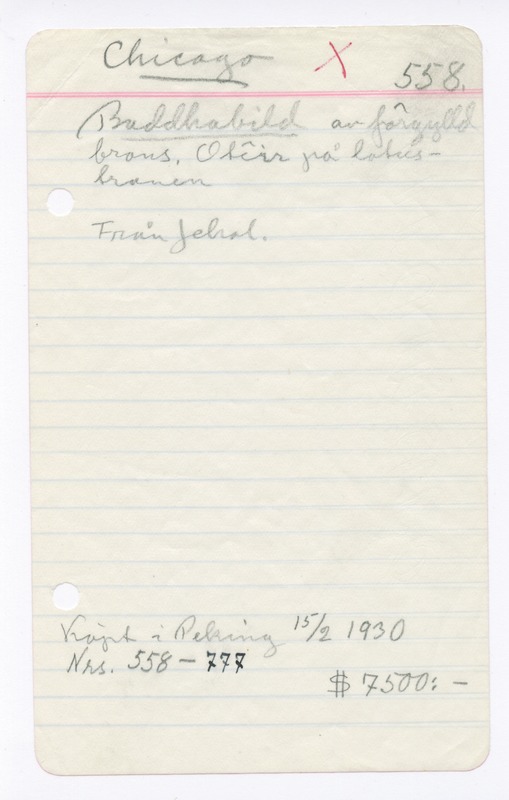 Chicago X 558.
Buddhabild av förgylld
brons. Sitter på lotus-
tronen
Från Jehol.
Köpt i Peking 15/2 1930
Nrs. 558 - 777
$ 7500: -